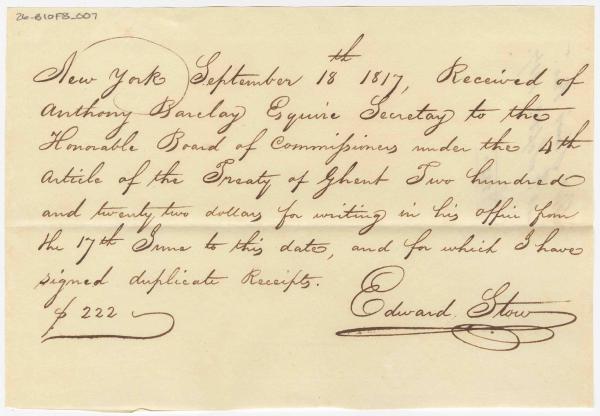 26-B10F8_007
New York September 18th 1817, Received of
Anthony Barclay Esquire Secretay to the
Honorable Board of Commissioners under the 4th
Article of the Treaty of Ghent Two hundred
and twenty two dollars for writing in his office from
the 17th June to this date, and for which I have
signed duplicate Receipts.
$ 222
Edward Stow